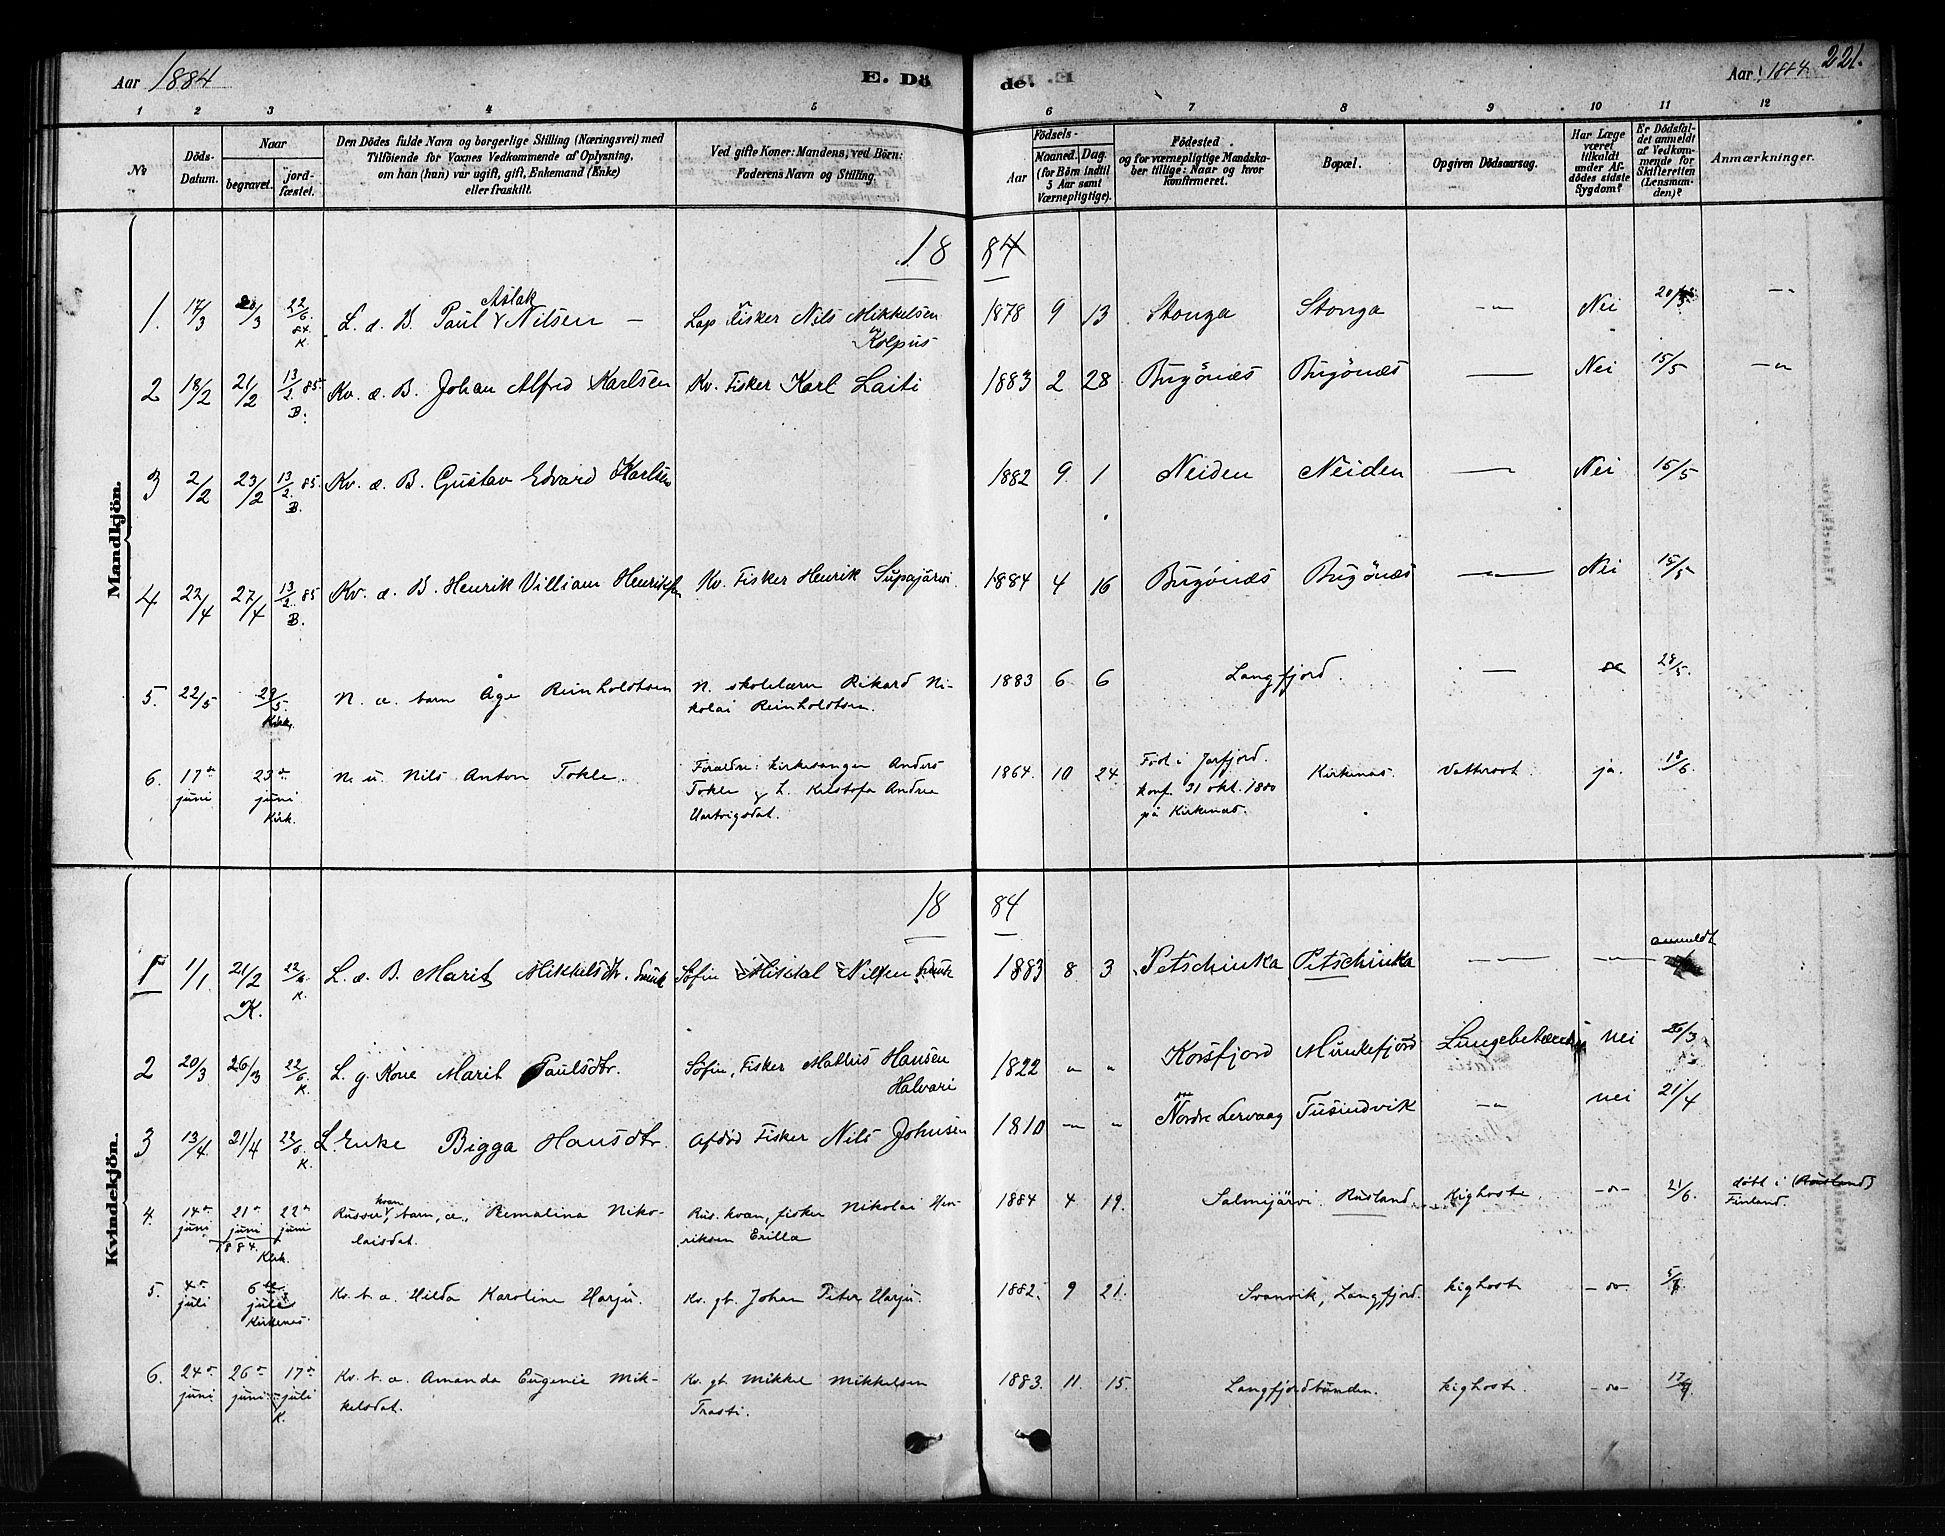 Aar 1884
E. Dö
de.
Aar 1884
221.
1 2 3 4 5 6 7 8 9 10 11 12
No
Döds-
Datum.
Naar
begravet.
jord-
fæstet.
Den Dödes fulde Navn og borgerlige Stilling (Næringsvei) med
Tilföiende for Voxnes Vedkommende af Oplysning,
om han (hun) var ugift, gift, Enkemand (Enke)
eller fraskilt.
Ved gifte Koner: Mandens, ved Börn:
Faderens Navn og Stilling.
Födsels-
Aar
Maaned. Dag.
(for Börn indtil
5 Aar samt
Værnepligtige).
Födested
og for værnepligtige Mandska-
ber tillige: Naar og hvor
konfirmeret.
Bopæl.
Opgiven Dödsaarsag.
Har Læge
været
tilkaldt
under Af-
dödes sidste
Sygdom?
Er Dödsfal-
det anmeldt
af Vedkom-
mende for
Skifteretten
(Lensman-
den)?
Anmærkninger.
Mandkjön.
18 84
1. 17/3 20/3 22/6 84 K. L. æ. B. Paul Aslak Nilsen — Lap Fisker Nils Mikkelsen
Kolpus
1878 9 13 Stonga Stonga —"— Nei 20/3 —"
2 18/2 21/2 13/2 85 B. Kv. æ. B. Johan Alfred Karlsen Kv. Fisker Karl Laiti 1883 2 28 Bugönæs Bugönæs —"— Nei 15/5 —"
3 2/2 23/2 13/2 85. B. Kv. æ. B. Gustav Edvard Karlsen 1882 9. 1 Neiden Neiden —"— Nei 15/5
4 22/4 27/4 13/2 85 B. Kv. æ. B. Henrik Villiam Henriksen Kv. Fisker Henrik Supajärvi 1884 4 16 Bugönæs Bugönæs —"— Nei 15/5
5. 22/5 29/5. Kirk. N. æ. barn Åge Reinholdtsen N. skolelærer Rikard Ni-
kolai Reinholdtsen.
1883 6 6 Langfjord. — 28/5.
6. 17de juni 23de juni Kirk. N. u. Nils Anton Tokle. Forældre: kirkesanger Anders
Tokle & L. Kristofa Andrea
Hartvigsdat.
1864. 10 24. Född i Jarfjord.
konf. 31 okt. 1880
på Kirkenæs.
Kirkenæs. Vattersot. ja. 18/6.
Kvindekjön.
18 84
1 1/1 21/2 K. 22/6 K. L. æ. B. Marit Mikkelsdtr. Smuk Söfin Mikkel Nilsen Smuk 1883 8 3 Petschinka Petschinka —"— —"— anmeldt
2 20/3 26/3 22/6 K. L. g. Kone Marit Paulsdtr. Söfin, Fisker Mathis Hansen
Halvari
1822 " " Korsfjord Munkefjord Lungebetænd. nei 26/3
3 13/4 21/4 22/6 K. L. Enke Bigga Hansdtr. Afdöd Fisker Nils Johnsen 1810 —"— " Nordre Lervaag Tusindvik —" nei 21/4
4. 14de juni 21de juni 1884. Kirk. 22de juni Russer kvæn, barn, æ., Remalina Niko-
laisdat.
Rus. kvæn, fisker Nikolai Hen-
riksen Erilla
1884 4 19. Salmijärvi. Rusland. kighoste. —"— 21/6 döbt i (Rusland)
Finland.
5. 4de juli 6te juli Kirkenes. Kv. b. æ. Hilda Karoline Harju. Kv. gb. Johan Peter Harju. 1882. 9 21. Svanvik, Langfjord. kighoste —"— 5/7
6. 24de juni 26de juni. 17de juli K. Kv. b. æ. Amanda Eugenie Mik-
kelsdat.
Kv. gb. Mikkel Mikkelsen
Trasti.
1883. 11. 15. Langfjordbunden. kighoste. —"— 17/7